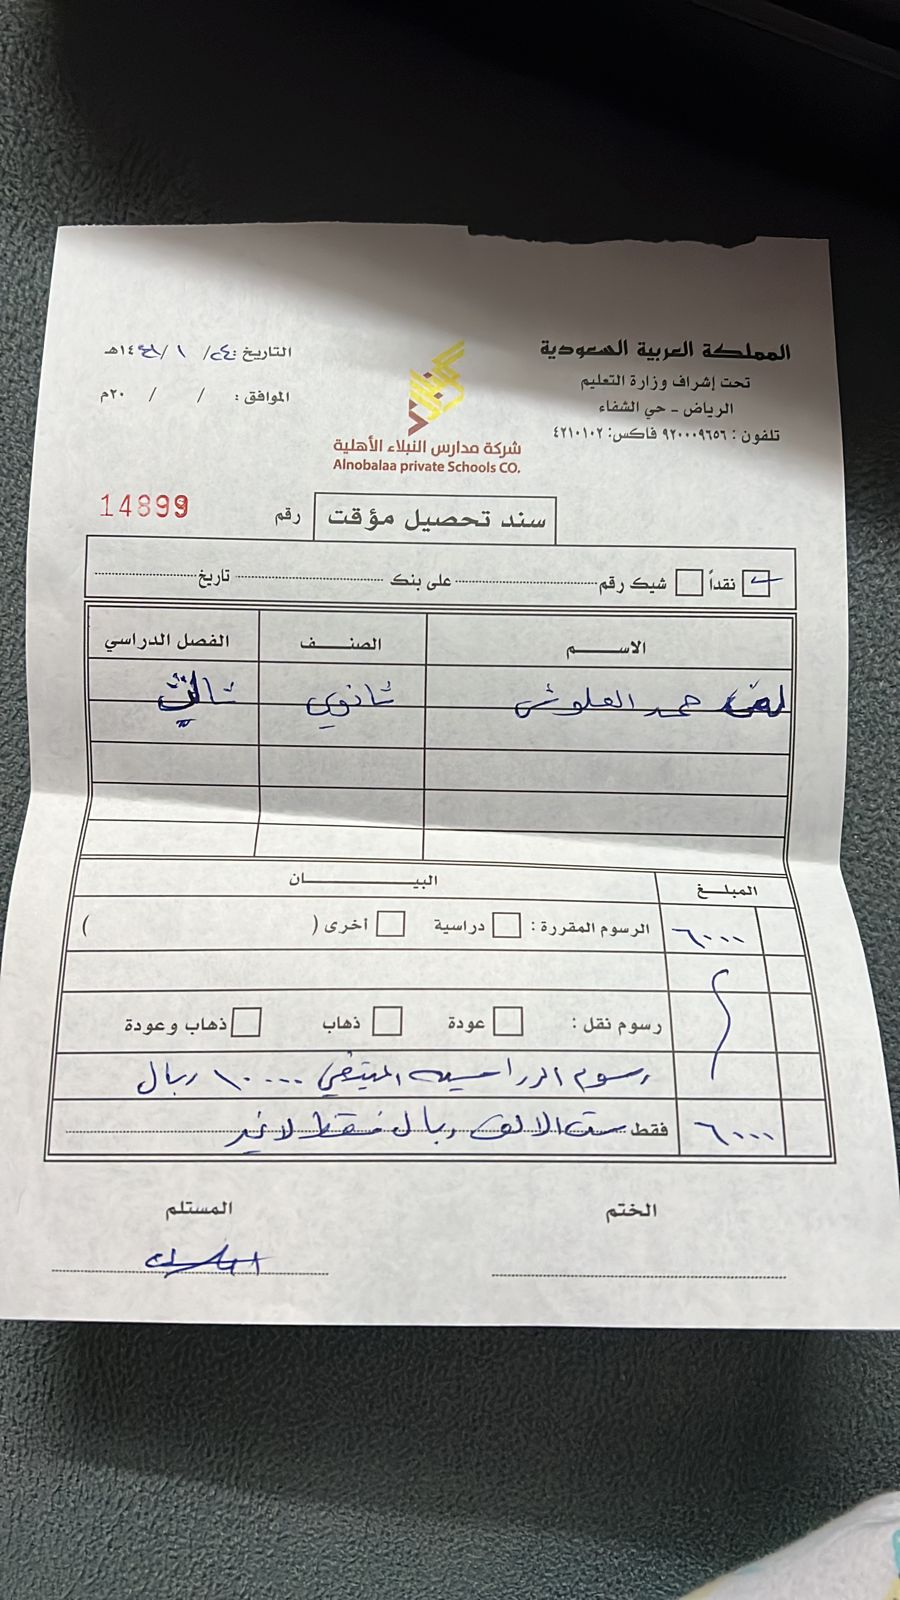 المملكة العربية السعودية
تحت إشراف وزارة التعليم
الرياض - حي الشفاء
تلفون : ٩٢٠٠٠٩٦٥٦ فاكس: ٤٢١٠١٠٢
شركة مدارس النبلاء الأهلية
Alnobalaa private Schools CO.
التاريخ : ٢٤ / ١ / ١٤هـ
الموافق : / / ٢٠م
سند تحصيل مؤقت
رقم 14899
نقداً شيك رقم على بنك تاريخ
الاســـم الصنـــف الفصل الدراسي
حمد العلوش ثانوي ثالث
المبلــغ البيـــــان
٦٠٠٠ الرسوم المقررة : دراسية أخرى ( )
رسوم نقل : عودة ذهاب ذهاب وعودة
رسوم الدراسيه المتبقي ١٠٠٠٠ ريال
٦٠٠٠ فقط ست الالف ريال فقط لاغير
الختم المستلم